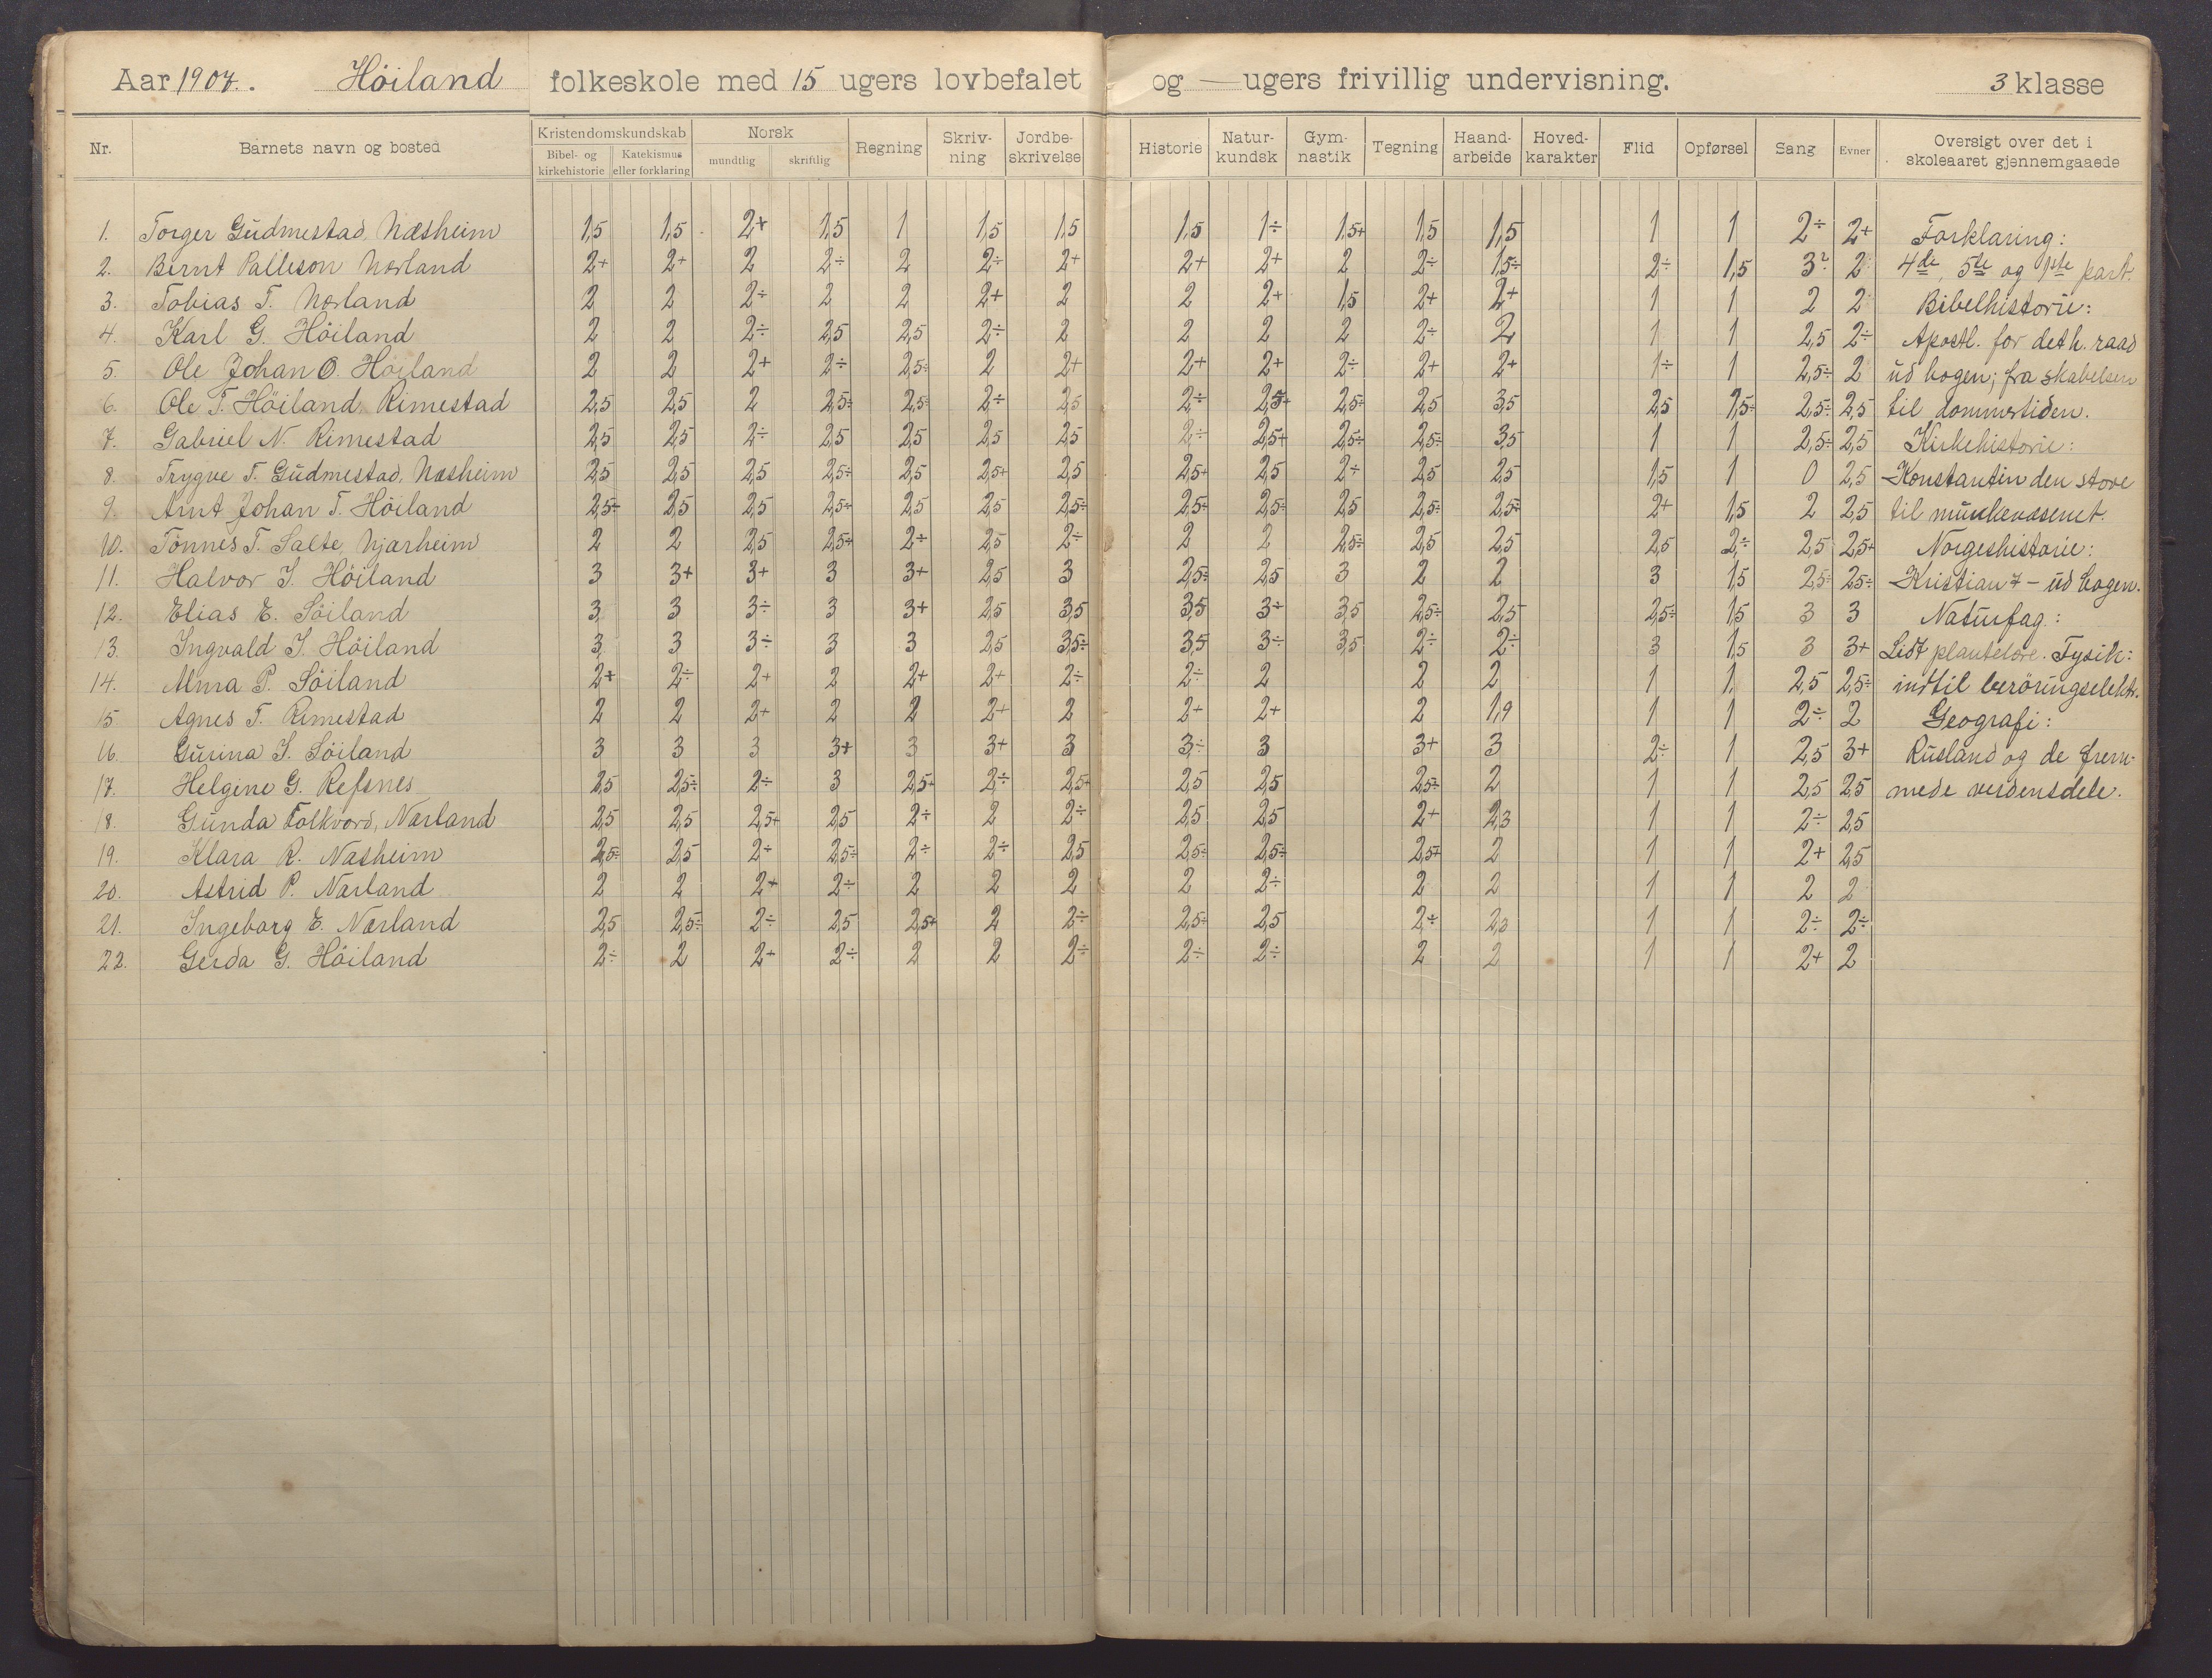 Aar 1907. Höiland folkeskole med 15 ugers lovbefalet og — ugers frivillig undervisning. 3 klasse
Nr. Barnets navn og bosted Kristendomskundskab Norsk Regning Skriv-ning Jordbe-skrivelse Historie Natur-kundsk Gym-nastik Tegning Haand-arbeide Hoved-karakter Flid Opførsel Sang Evner Oversigt over det i skoleaaret gjennemgaaede
Bibel- og kirkehistorie Katekismus eller forklaring mundtlig skriftlig
1. Torger Gudmestad, Næsheim 1,5 1,5 2+ 1,5 1 1,5 1,5 1,5 1÷ 1,5+ 1,5 1,5 1 1 2÷ 2+ Forklaring:
2. Bernt Palleson Nærland 2+ 2+ 2 2÷ 2 2÷ 2+ 2+ 2+ 2 2÷ 1,5÷ 2÷ 1,5 3? 2 4de, 5te og 1ste part.
3. Tobias T. Nærland 2 2 2÷ 2 2 2+ 2 2 2+ 1,5 2+ 2+ 1 1 2 2 Bibelhistorie:
4. Karl G. Höiland 2 2 2÷ 2,5 2,5 2÷ 2 2 2 2 2÷ 2 1 1 2,5 2÷ Apostl. for det h. raad
5. Ole Johan O. Höiland 2 2 2+ 2÷ 2,5÷ 2 2+ 2+ 2+ 2÷ 2+ 2+ 1÷ 1 2,5÷ 2 ud bogen; fra skabelsen
6. Ole T. Höiland, Rimestad 2,5 2,5 2 2,5÷ 2,5÷ 2÷ 2,5 2÷ 2,5+ 2,5÷ 2,5 3,5 2,5 1,5÷ 2,5÷ 2,5 til dommertiden.
7. Gabriel N. Rimestad 2,5 2,5 2÷ 2,5 2,5 2,5 2,5 2÷ 2,5+ 2,5÷ 2,5÷ 3,5 1 1 2,5÷ 2,5 Kirkehistorie:
8. Trygve T. Gudmestad, Næsheim 2,5 2,5 2,5 2,5÷ 2,5 2,5+ 2,5 2,5+ 2,5 2÷ 2,5 2,5 1,5 1 0 2,5 Konstantin den store
9. Arnt Johan T. Höiland 2,5÷ 2,5 2,5 2,5÷ 2,5 2,5 2,5÷ 2,5÷ 2,5÷ 2,5 2,5÷ 2,5÷ 2+ 1,5 2 2,5 til munkevæsenet.
10. Tönnes T. Salte, Njærheim 2 2 2,5 2,5+ 2÷ 2,5 2÷ 2 2 2,5÷ 2,5 2,5 2,5 2÷ 2,5 2,5+ Norgeshistorie:
11. Halvor J. Höiland 3 3+ 3+ 3 3+ 2,5 3 2,5÷ 2,5 3 2 2 3 1,5 2,5÷ 2,5÷ Kristian 7 – ud bogen.
12. Elias E. Söiland 3 3 3÷ 3 3+ 2,5 3,5 3,5 3÷ 3,5 2,5÷ 2,5 2,5÷ 1,5 3 3 Naturfag:
13. Ingvald J. Höiland 3 3 3÷ 3 3 2,5 3,5÷ 3,5 3÷ 3,5 2÷ 2÷ 3 1,5 3 3+ Lidt plantelære. Fysik:
14. Alma P. Söiland 2+ 2÷ 2+ 2 2+ 2+ 2÷ 2÷ 2 2 2 1 1 2,5 2,5÷ indtil beröringselektr.
15 Agnes T. Rimestad 2 2 2+ 2 2 2+ 2 2+ 2+ 2 1,9 1 1 2÷ 2 Geografi:
16. Gurina S. Söiland 3 3 3 3+ 3 3+ 3 3÷ 3 3+ 3 2÷ 1 2,5 3+ Rusland og de frem-
17. Helgine G. Refsnes 2,5 2,5÷ 2÷ 3 2,5+ 2÷ 2,5+ 2,5 2,5 2,5÷ 2 1 1 2,5 2,5 mede verdensdele.
18. Gunda Folkvord, Nærland 2,5 2,5 2,5+ 2,5 2÷ 2 2÷ 2,5 2,5 2+ 2,3 1 1 2÷ 2,5
19. Klara R. Næsheim 2,5÷ 2,5 2÷ 2,5÷ 2÷ 2÷ 2,5 2,5÷ 2,5÷ 2,5+ 2 1 1 2+ 2,5
20. Astrid P. Nærland 2 2 2+ 2÷ 2 2 2 2 2÷ 2 2 1 1 2 2
21. Ingeborg E. Nærland 2,5 2,5÷ 2÷ 2,5 2,5+ 2 2÷ 2,5÷ 2,5 2÷ 2,3 1 1 2÷ 2÷
22. Gerda G. Höiland 2÷ 2 2+ 2÷ 2 2 2÷ 2÷ 2÷ 2 2 1 1 2+ 2